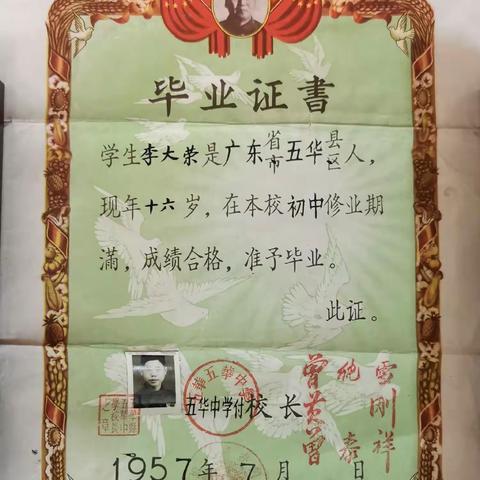 毕业证書
学生李大荣是广东省市五华县区人，
现年十六岁，在本校初中修业期
满，成绩合格，准予毕业。
此证。
五华中学付校长
1957年7月 日